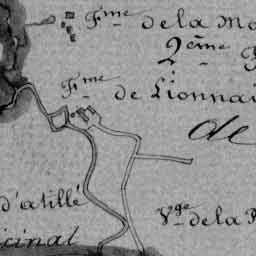 Fme de la Mo
2ème
Fme
de Lionnai
de
d'atillé
Vge de la P
icinal